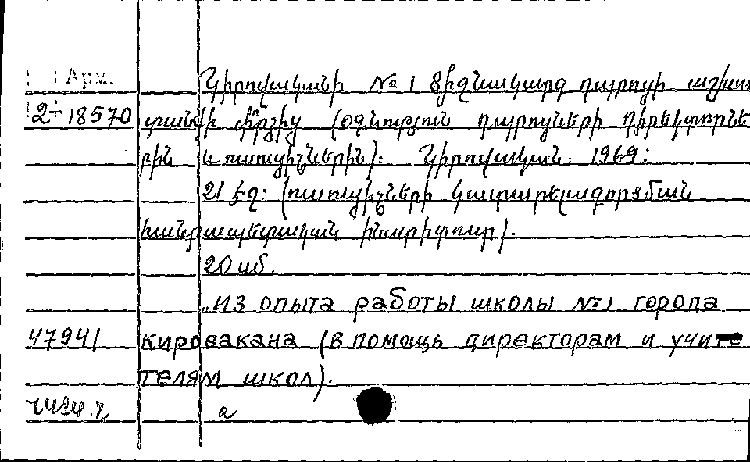 Арм. Կիրովականի № 1 միջնակարգ դպրոցի աշխա
2-18570 տանքի փորձից (օգնություն դպրոցների դիրեկտորնե
րին և ուսուցիչներին). Կիրովական 1969:
21 էջ: (ուսուցիչների կատարելագործման
հանրապետական ինստիտուտ).
20 սմ.
„Из опыта работы школы №1 города
47941 кировакана (в помощь директорам и учите
телям школ).
а